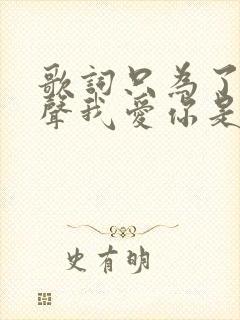 歌詞只為了
聲我愛你是
史有明